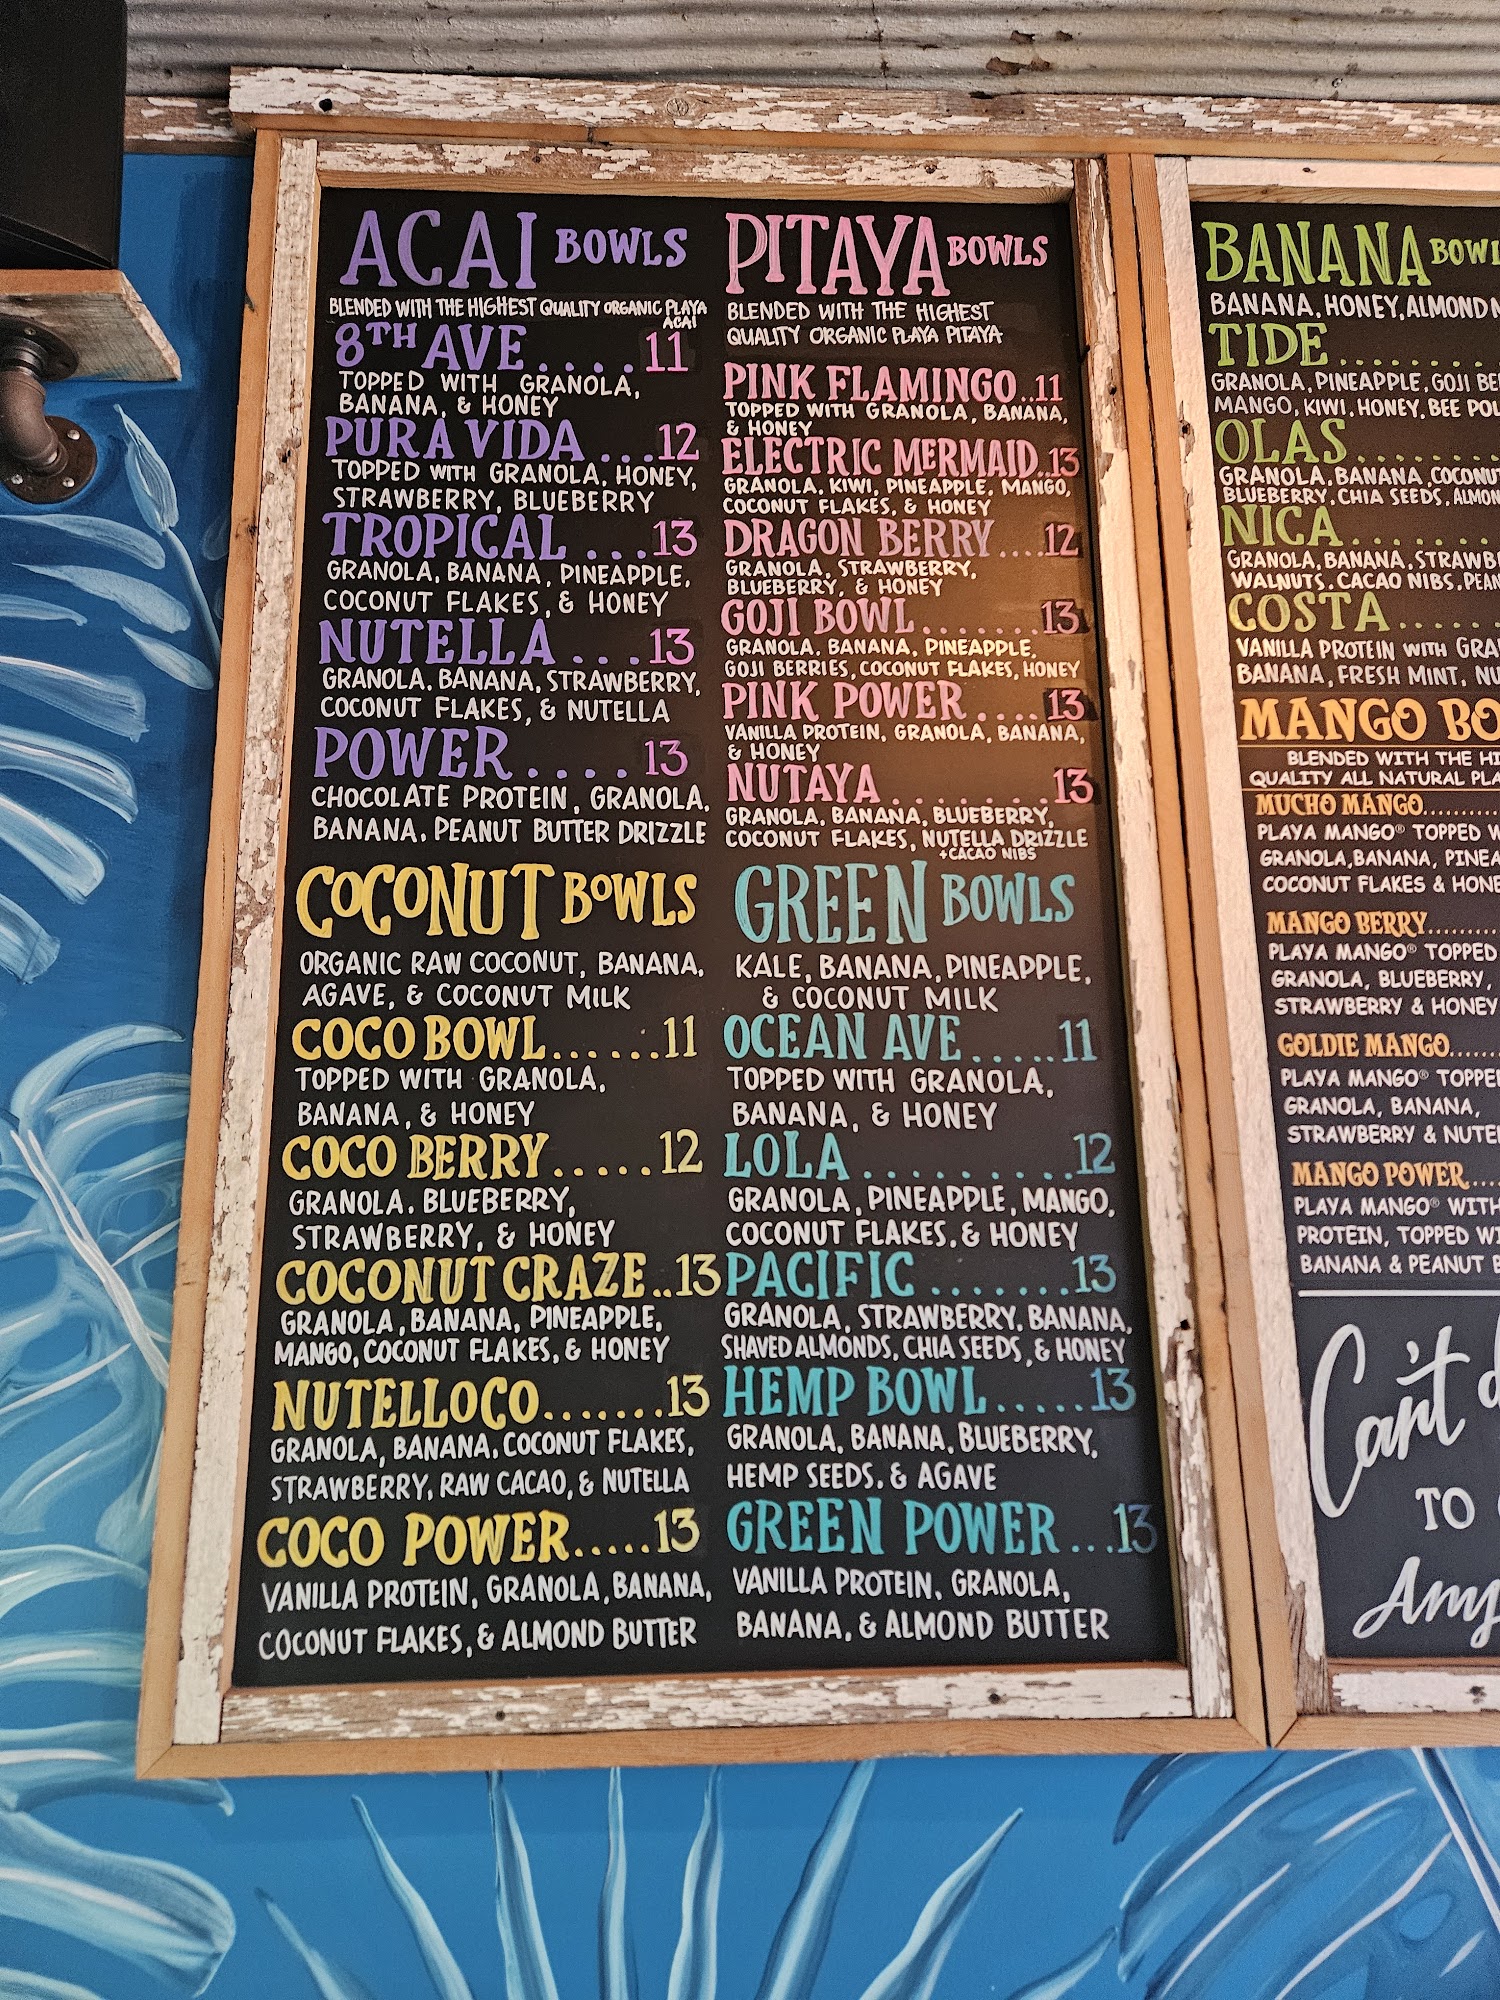 ACAI BOWLS
BLENDED WITH THE HIGHEST QUALITY ORGANIC PLAYA
ACAI
8TH AVE....11
TOPPED WITH GRANOLA,
BANANA, & HONEY
PURA VIDA ...12
TOPPED WITH GRANOLA, HONEY,
STRAWBERRY, BLUEBERRY
TROPICAL ...13
GRANOLA, BANANA, PINEAPPLE,
COCONUT FLAKES, & HONEY
NUTELLA ...13
GRANOLA, BANANA, STRAWBERRY,
COCONUT FLAKES, & NUTELLA
POWER....13
CHOCOLATE PROTEIN, GRANOLA,
BANANA, PEANUT BUTTER DRIZZLE
COCONUT BOWLS
ORGANIC RAW COCONUT, BANANA,
AGAVE, & COCONUT MILK
COCO BOWL......11
TOPPED WITH GRANOLA,
BANANA, & HONEY
COCO BERRY.....12
GRANOLA, BLUEBERRY,
STRAWBERRY, & HONEY
COCONUT CRAZE..13
GRANOLA, BANANA, PINEAPPLE,
MANGO, COCONUT FLAKES, & HONEY
NUTELLOCO.......13
GRANOLA, BANANA, COCONUT FLAKES,
STRAWBERRY, RAW CACAO, & NUTELLA
COCO POWER.....13
VANILLA PROTEIN, GRANOLA, BANANA,
COCONUT FLAKES, & ALMOND BUTTER
PITAYA BOWLS
BLENDED WITH THE HIGHEST
QUALITY ORGANIC PLAYA PITAYA
PINK FLAMINGO..11
TOPPED WITH GRANOLA, BANANA,
& HONEY
ELECTRIC MERMAID..13
GRANOLA, KIWI, PINEAPPLE, MANGO,
COCONUT FLAKES, & HONEY
DRAGON BERRY....12
GRANOLA, STRAWBERRY,
BLUEBERRY, & HONEY
GOJI BOWL.......13
GRANOLA, BANANA, PINEAPPLE,
GOJI BERRIES, COCONUT FLAKES, HONEY
PINK POWER ....13
VANILLA PROTEIN, GRANOLA, BANANA,
& HONEY
NUTAYA.......13
GRANOLA, BANANA, BLUEBERRY,
COCONUT FLAKES, NUTELLA DRIZZLE
+CACAO NIBS
GREEN BOWLS
KALE, BANANA, PINEAPPLE,
& COCONUT MILK
OCEAN AVE.....11
TOPPED WITH GRANOLA,
BANANA, & HONEY
LOLA.........12
GRANOLA, PINEAPPLE, MANGO,
COCONUT FLAKES, & HONEY
PACIFIC.......13
GRANOLA, STRAWBERRY, BANANA,
SHAVED ALMONDS, CHIA SEEDS, & HONEY
HEMP BOWL.....13
GRANOLA, BANANA, BLUEBERRY,
HEMP SEEDS, & AGAVE
GREEN POWER...13
VANILLA PROTEIN, GRANOLA,
BANANA, & ALMOND BUTTER
BANANA
BANANA, HONEY, ALMOND
TIDE........
GRANOLA, PINEAPPLE, GOJI
MANGO, KIWI, HONEY, BEE
OLAS.......
GRANOLA, BANANA,
BLUEBERRY, CHIA SEEDS,
NICA.......
GRANOLA, BANANA,
WALNUTS, CACAO NIBS,
COSTA......
VANILLA PROTEIN WITH
BANANA, FRESH MINT,
MANGO
BLENDED WITH THE
QUALITY ALL NATURAL
MUCHO MANGO..........
PLAYA MANGO® TOPPED
GRANOLA, BANANA,
COCONUT FLAKES &
MANGO BERRY.........
PLAYA MANGO® TOPPED
GRANOLA, BLUEBERRY,
STRAWBERRY & HONEY
GOLDIE MANGO......
PLAYA MANGO®
GRANOLA, BANANA,
STRAWBERRY &
MANGO POWER....
PLAYA MANGO® WITH
PROTEIN, TOPPED
BANANA & PEANUT
Can't
TO